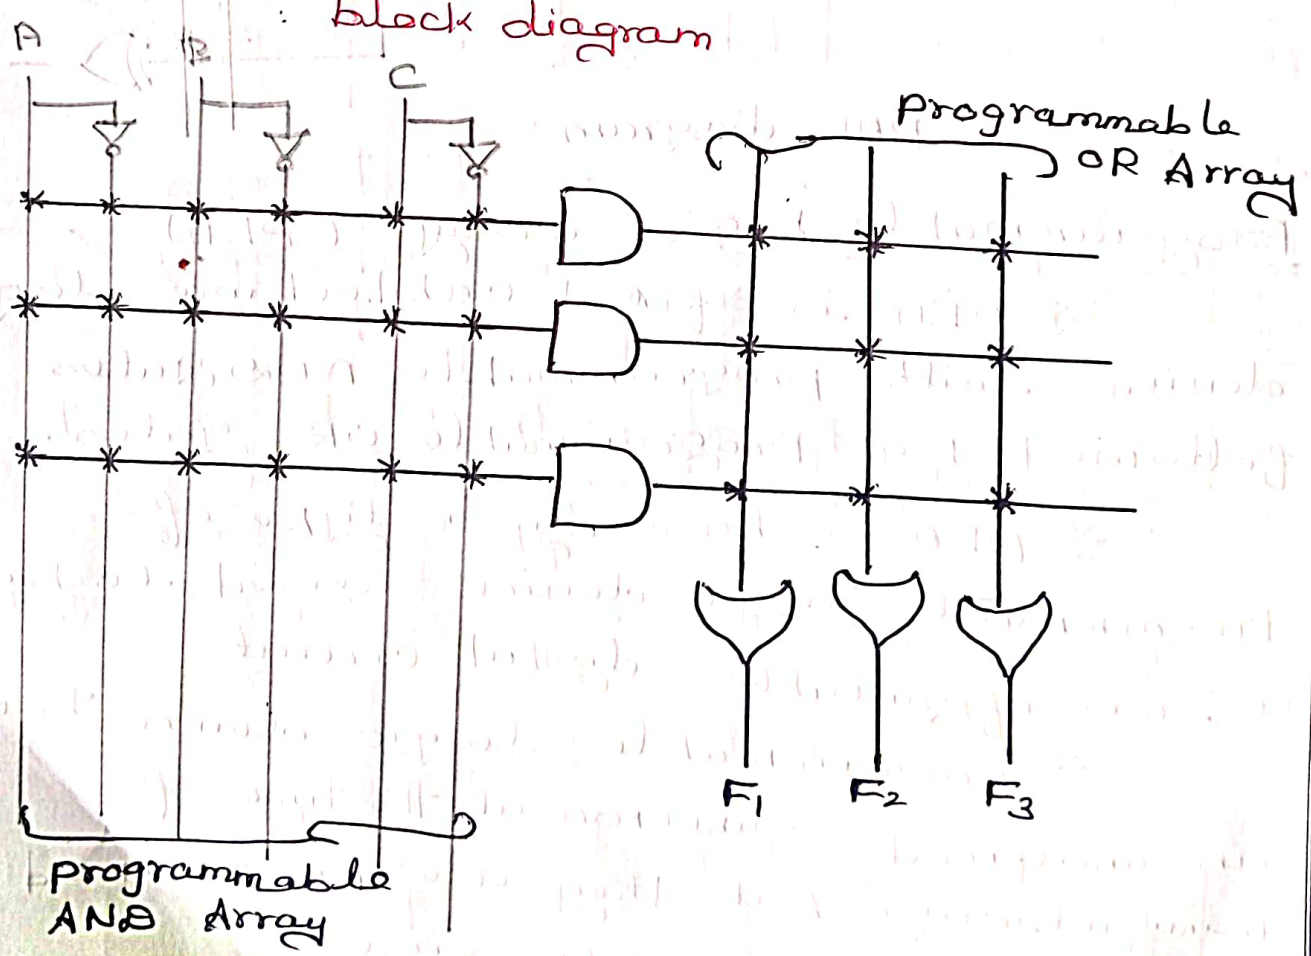 : block diagram
A
B
C
Programmable
OR Array
F1
F2
F3
Programmable
AND Array